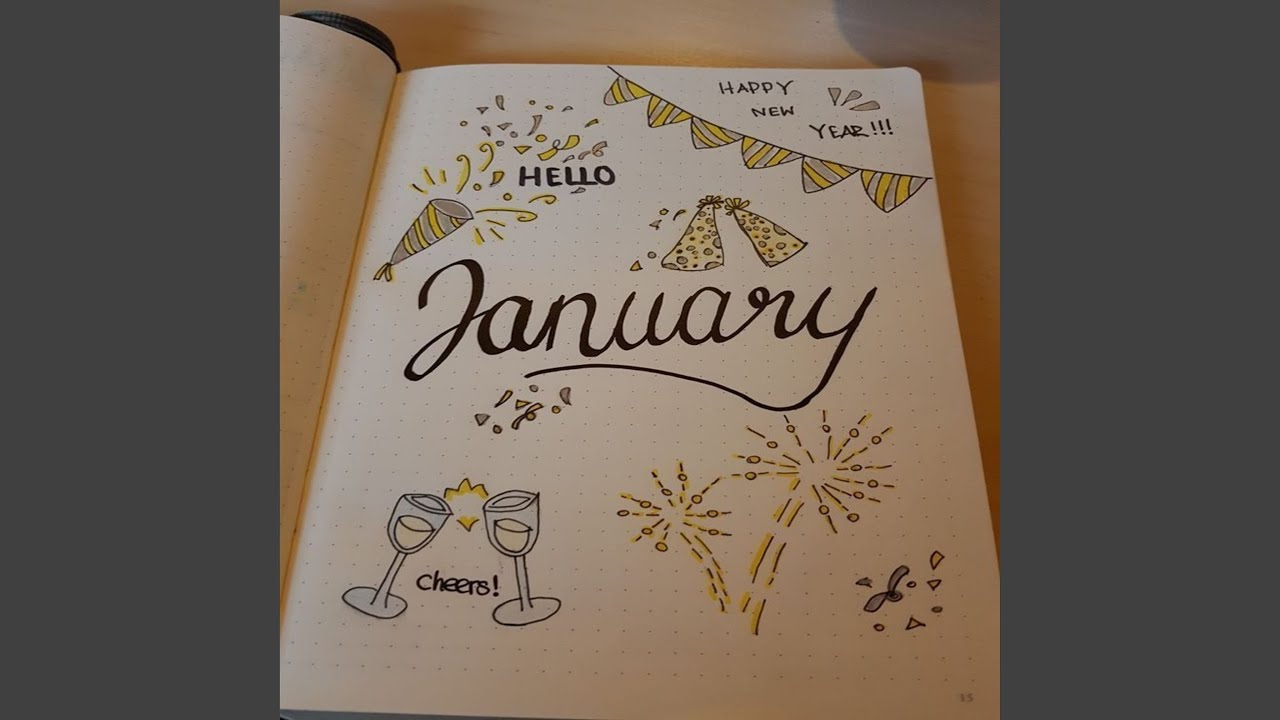 HAPPY
NEW
YEAR!!!
HELLO
January
cheers!
15